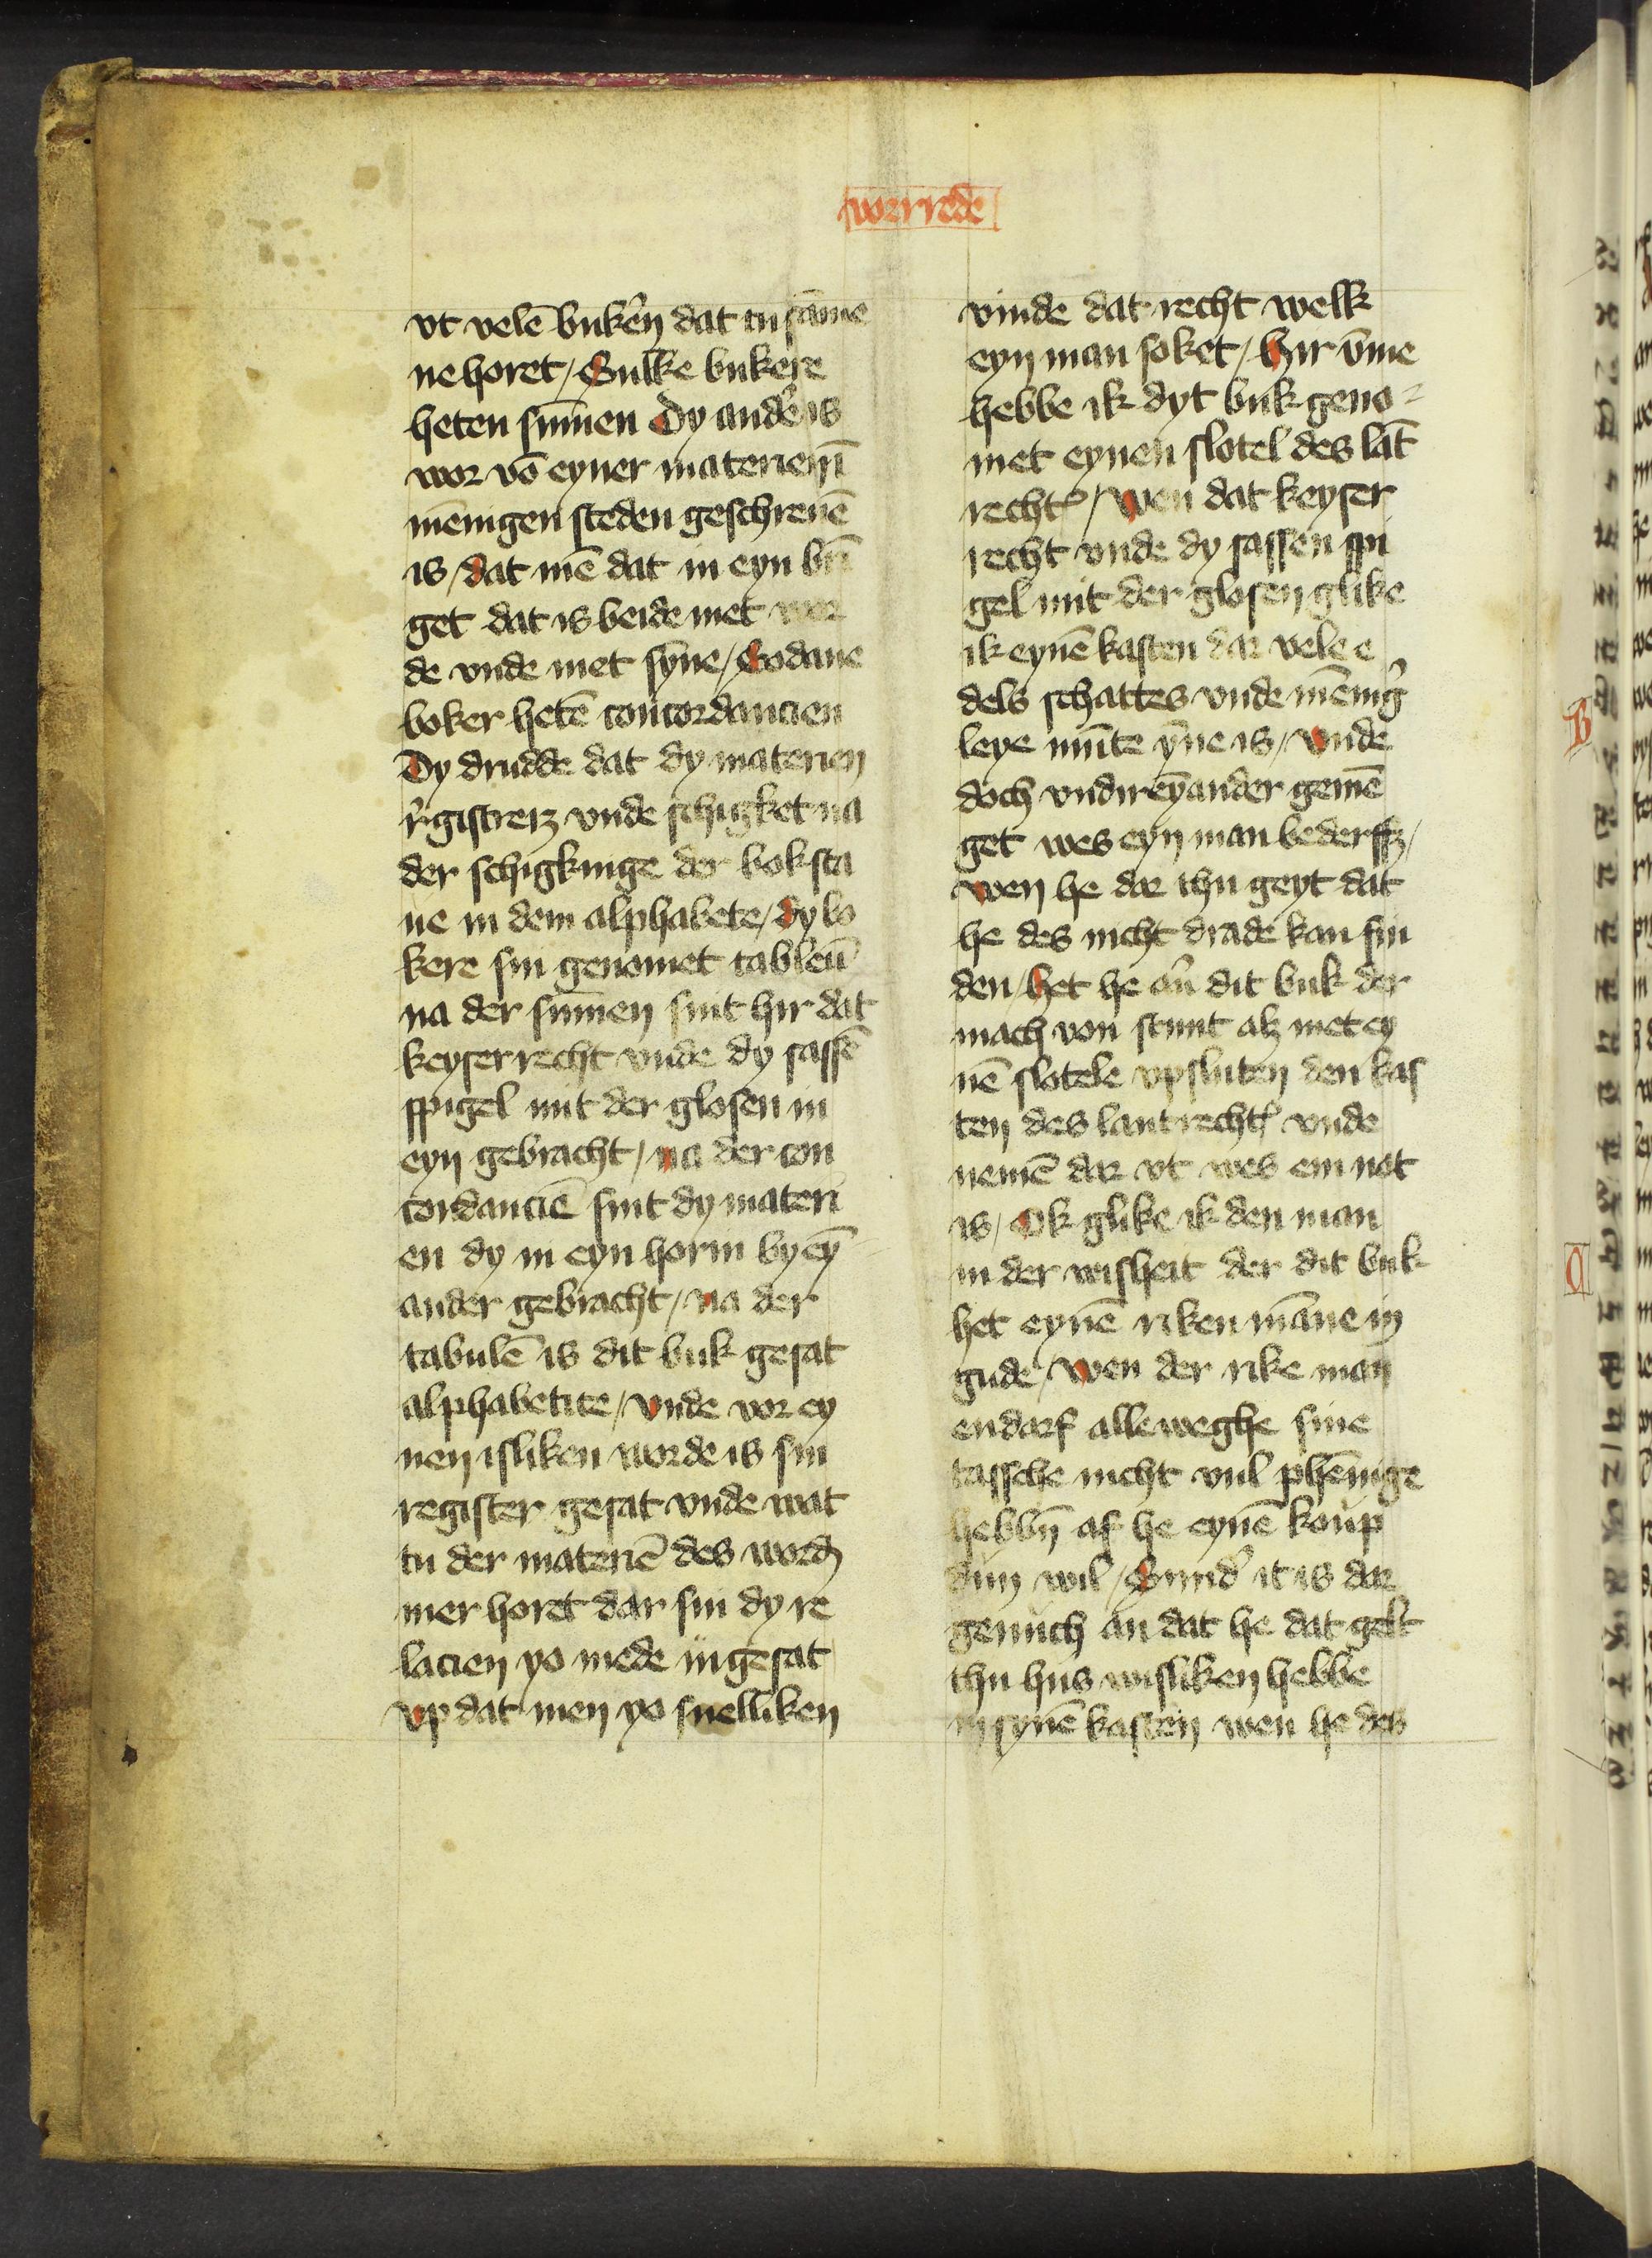 vorrede
vt velē bukeren dat tu sāme
ne horet / Sulke bukere
heten sum̄en Dy ander is
wor vō eyner materien ī
mēnigen steden geschreuē
is / dat mē dat in eyn brī
get dat is beide met wor
de vnde met syne / Sodane
boker hetē concordancien
Dy drudde dat dy materien
registrerz vnde schigket na
der schigkinge der boksta
ue in dem alphabete / dy bo
kere sin genomet tablen̄
na der sum̄en sint hir dat
keyserrecht vnde dy sassē
spigel mit der glosen in
eyn gebracht / na der con
cordanciē sint dy materi
en dy in eyn horin by eȳ
ander gebracht / na der
tabulē is dit buk gesat
alphabetite / vnde vor ey
nen isliken worde is sin
register gesat vnde wat
tu der materiē des wordes
mer horet dar sin dy re
lacien yo mede ingesat
vp dat men yo snelliken
vinde dat recht welk
eyn man soket / hir v̄me
hebbe ik dyt buk geno
met eynen slotel des lāt
rechts / wen dat keyser
recht vnde dy sassen spi
gel mit der glosen glike
ik eynē kasten dar vele e
dels schattes vnde mēniger
leye mūnte ȳne is / vnde
doch vndireyander gemē
get wes eyn man bederffz /
wen he dar thu geyt dat
he des nicht drade kan fin
den / het he auer dit buk der
mach von stunt alz met ey
nē slotele vpsluten den kas
ten des lantrechts vnde
nemē dar vt wes em not
is / Ok glike ik den man
in der wisheit der dit buk
het eynē riken māne in
gude / wen der rike man
endarf alleweghe sine
tassche nicht vul phēnige
hebbn̄ af he eynē koup
dun wil / Sunder it is dar
genuch an dat he dat gelt
thu hus wisliken hebbe
in synē kasten wen he des